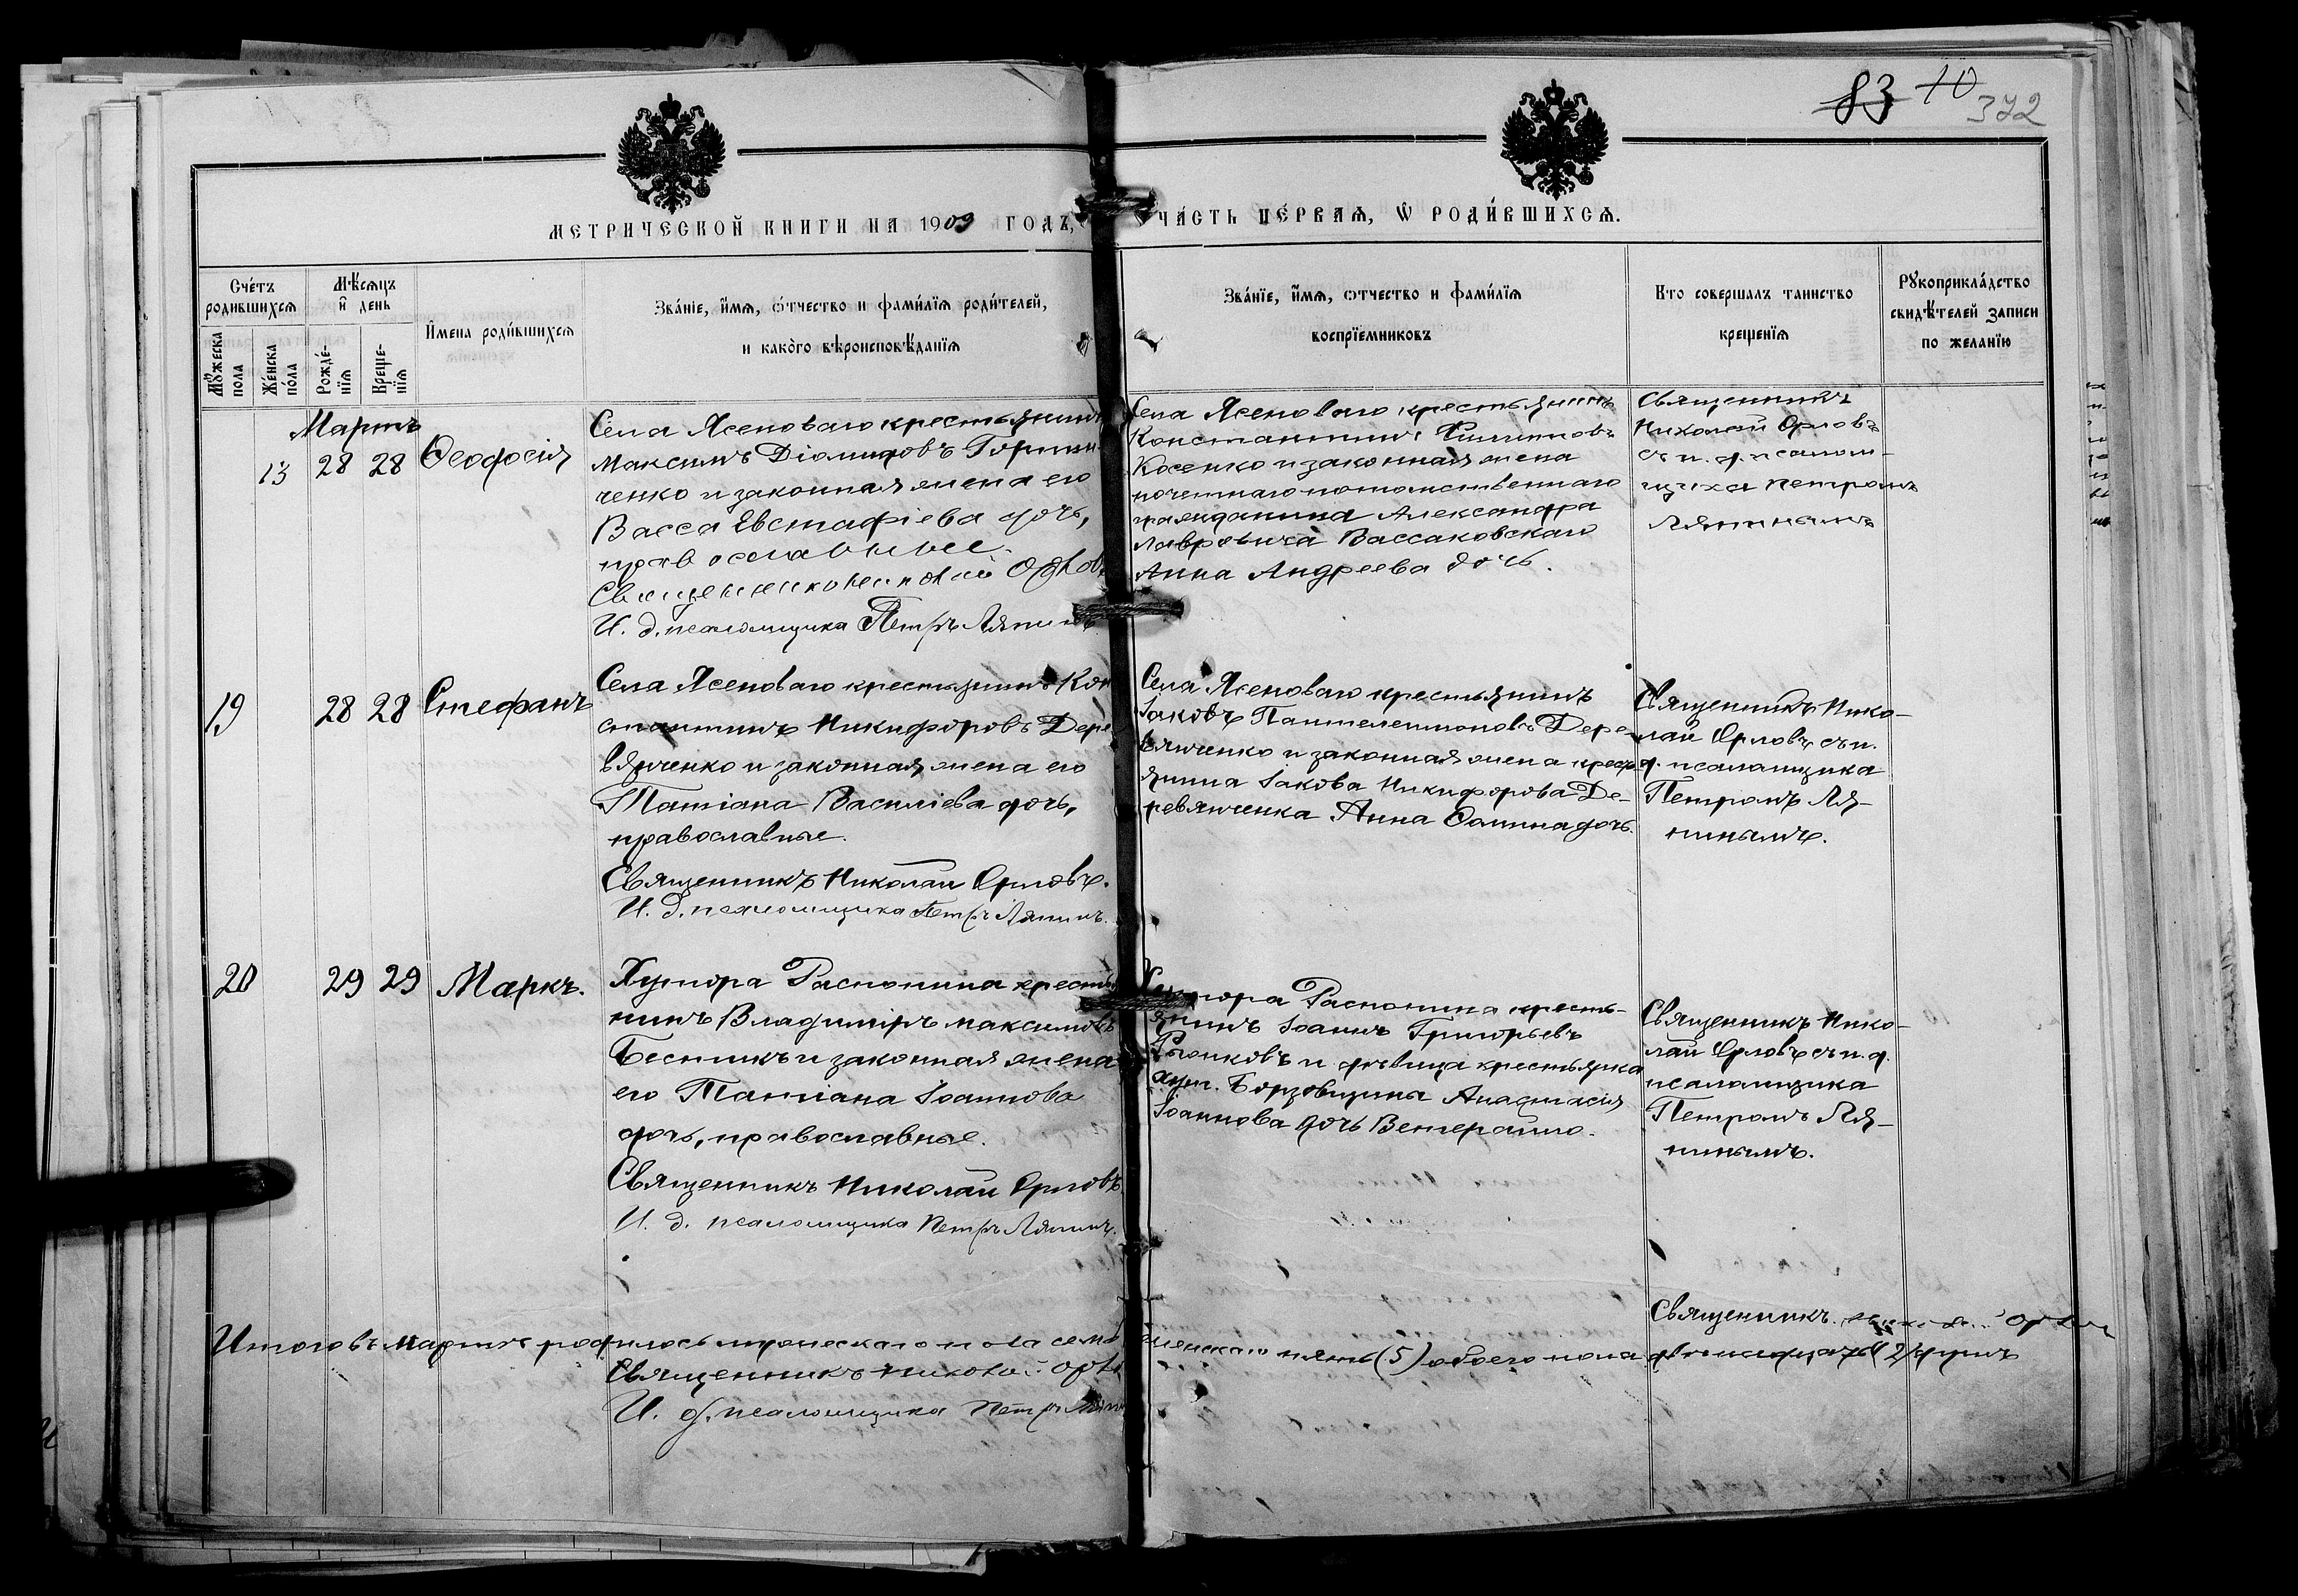 83 10
372
МЕТРИЧЕСКОЙ КНИГИ НА 1909 ГОДЪ,
ЧА́СТЬ ПЕ́РВАЯ, Ѡ РОДИ́ВШИХСѦ.
Сче́тъ родившихся
Мѣ́сяцъ и҆ день
И҆мена роди́вшихся
Зва́нїе, и҆́мя, ѻ҆́тчество и фами́лїя роди́телей,
и како́го вѣроисповѣ́данїя
Зва́нїе, и҆́мя, ѻтчество и фами́лїя
воспрїемниковъ
Кто совершалъ таинство
крещенїя
Рꙋкоприкла́дство
свидѣ́телей записи
по желанїю
Мꙋ́жеска пола
Же́нска по́ла
Рожде́-нїя
Креще-нїя
Мартъ
13 28 28 Ѳеодосія
Села Ясеноваго крестьянинъ
Максимъ Діомидовъ
ченко и законная жена его
Васса Евстафіева дочь,
православные.
Священникъ Николай Орловъ
И. д. псаломщика Петръ Ляпинъ
Села Ясеноваго крестьянинъ
Константинъ Филипповъ
Косенко и законная жена
почетнаго потомственнаго
гражданина Александра
Лавровича Вассаковскаго
Анна Андреева дочь.
Священникъ
Николай Орловъ
съ и. д. псалом-
щика Петромъ
Ляпинымъ
19 28 28 Стефанъ
Села Ясеноваго крестьянинъ Кон
стантинъ Никифоровъ Дере
вянченко и законная жена его
Татіана Василіева дочь,
православные.
Священникъ Николай Орловъ.
И. д. псаломщика Петръ Ляпинъ.
Села Ясеноваго крестьянинъ
Іаковъ Пантелеимоновъ Дере-
вянченко и законная жена крест
янина Іакова Никифорова Де-
ревянченка Анна дочь.
Священникъ Нико-
лай Орловъ съ и.
д. псаломщика
Петромъ Ля-
пинымъ.
20 29 29 Маркъ.
Хутора Распопина кресть
нинъ Владиміръ Максимовъ
Бесникъ и законная жена
его Татіана Іоаннова
дочь, православные.
Священникъ Николай Орловъ
И. д. псаломщика Петръ Ляпинъ.
Хутора Распопина кресть-
янинъ Іоаннъ Григорьевъ
и дѣвица крестьянка
хут. Борзовщины Анастасія
Іоаннова дочь
Священникъ Нико-
лай Орловъ съ и. д.
псаломщика
Петромъ Ля-
пинымъ.
Итого въ мартѣ родилось мужескаго пола семь женскаго пять (5) обоего пола двѣнадцать (12) душъ
Священникъ Николай Орлов
И. д. псаломщика Петръ Ляпин
Священникъ Николай Орлов